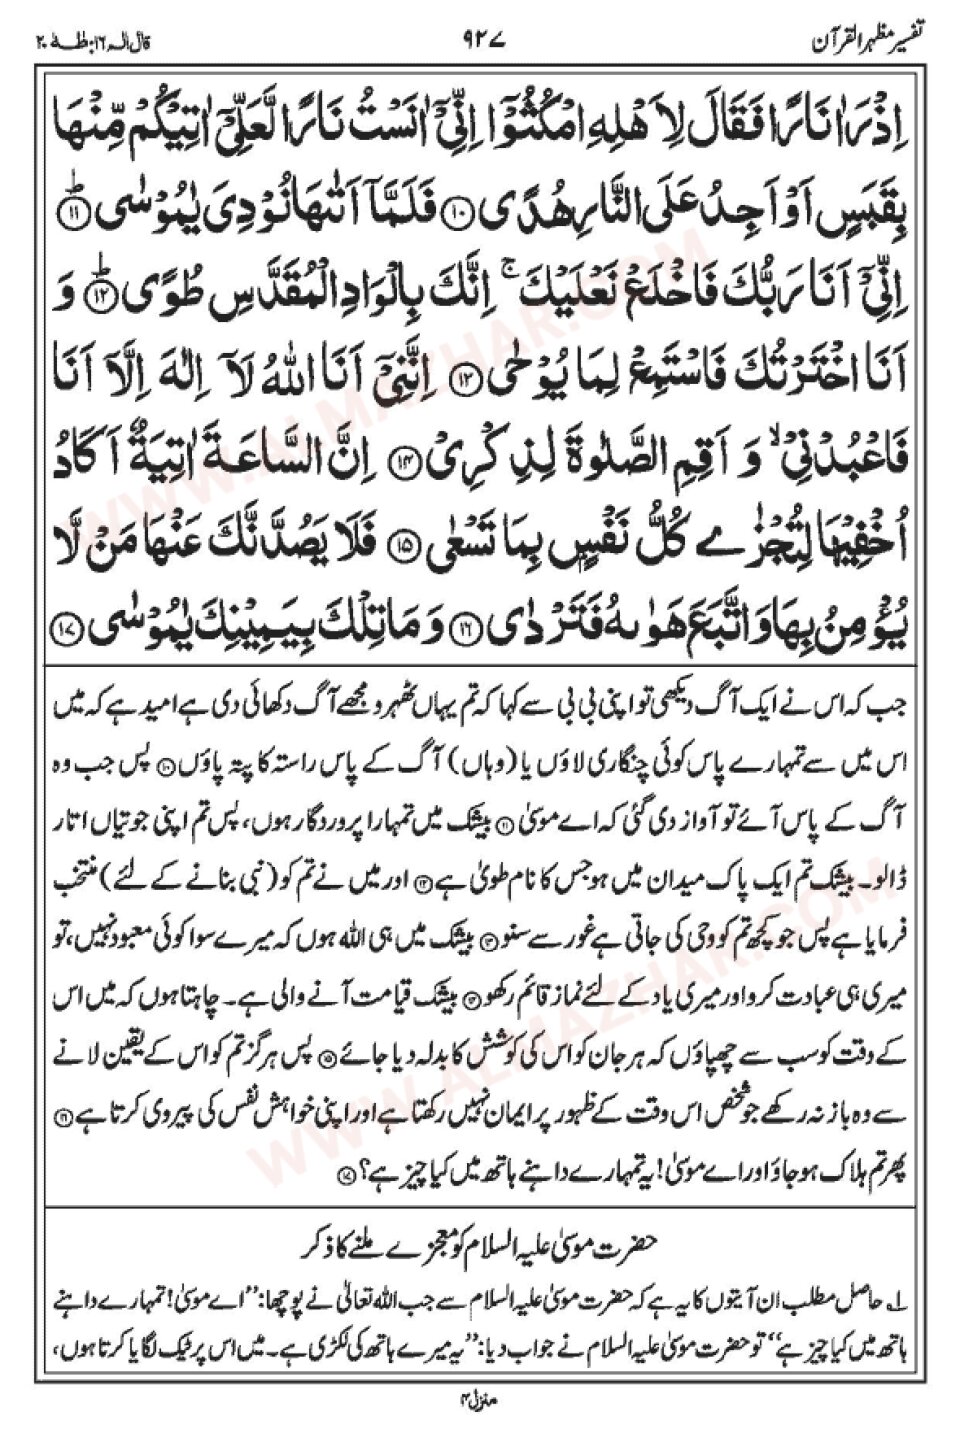 تفسیر مظہر القرآن
۹۲۷
قال الم ۱۶: طٰہٰ ۲۰
اِذْ رَاٰ نَارًا فَقَالَ لِاَهْلِهِ امْكُثُوْۤا اِنِّیْۤ اٰنَسْتُ نَارًا لَّعَلِّیْۤ اٰتِیْكُمْ مِّنْهَا
بِقَبَسٍ اَوْ اَجِدُ عَلَی النَّارِ هُدًی ۝۱۰ فَلَمَّاۤ اَتٰىهَا نُوْدِیَ یٰمُوْسٰی ۝۱۱ؕ
اِنِّیْۤ اَنَا رَبُّكَ فَاخْلَعْ نَعْلَیْكَ ۚ اِنَّكَ بِالْوَادِ الْمُقَدَّسِ طُوًی ۝۱۲ؕ وَ
اَنَا اخْتَرْتُكَ فَاسْتَمِعْ لِمَا یُوْحٰی ۝۱۳ اِنَّنِیْۤ اَنَا اللّٰهُ لَاۤ اِلٰهَ اِلَّاۤ اَنَا
فَاعْبُدْنِیْ ۙ وَ اَقِمِ الصَّلٰوةَ لِذِكْرِیْ ۝۱۴ اِنَّ السَّاعَةَ اٰتِیَةٌ اَكَادُ
اُخْفِیْهَا لِتُجْزٰے كُلُّ نَفْسٍۭ بِمَا تَسْعٰی ۝۱۵ فَلَا یَصُدَّنَّكَ عَنْهَا مَنْ لَّا
یُؤْمِنُ بِهَا وَ اتَّبَعَ هَوٰىهُ فَتَرْدٰی ۝۱۶ وَ مَا تِلْكَ بِیَمِیْنِكَ یٰمُوْسٰی ۝۱۷
جب کہ اس نے ایک آگ دیکھی تو اپنی بی بی سے کہا کہ تم یہاں ٹھہرو مجھے آگ دکھائی دی ہے امید ہے کہ میں
اس میں سے تمہارے پاس کوئی چنگاری لاؤں یا (وہاں) آگ کے پاس راستہ کا پتہ پاؤں ۝۱۰ پس جب وہ
آگ کے پاس آئے تو آواز دی گئی کہ اے موسیٰ ۝۱۱ بیشک میں تمہارا پروردگار ہوں، پس تم اپنی جوتیاں اتار
ڈالو۔ بیشک تم ایک پاک میدان میں ہو جس کا نام طویٰ ہے ۝۱۲ اور میں نے تم کو (نبی بنانے کے لئے) منتخب
فرمایا ہے پس جو کچھ تم کو وحی کی جاتی ہے غور سے سنو ۝۱۳ بیشک میں ہی اللہ ہوں کہ میرے سوا کوئی معبود نہیں، تو
میری ہی عبادت کرو اور میری یاد کے لئے نماز قائم رکھو ۝۱۴ بیشک قیامت آنے والی ہے۔ چاہتا ہوں کہ میں اس
کے وقت کو سب سے چھپاؤں کہ ہر جان کو اس کی کوشش کا بدلہ دیا جائے ۝۱۵ پس ہرگز تم کو اس کے یقین لانے
سے وہ باز نہ رکھے جو شخص اس وقت کے ظہور پر ایمان نہیں رکھتا ہے اور اپنی خواہش نفس کی پیروی کرتا ہے ۝۱۶
پھر تم ہلاک ہو جاؤ اور اے موسیٰ! یہ تمہارے داہنے ہاتھ میں کیا چیز ہے؟ ۝۱۷
حضرت موسیٰ علیہ السلام کو معجزے ملنے کا ذکر
۱۔ حاصل مطلب ان آیتوں کا یہ ہے کہ حضرت موسیٰ علیہ السلام سے جب اللہ تعالیٰ نے پوچھا: ’’اے موسیٰ! تمہارے داہنے
ہاتھ میں کیا چیز ہے‘‘ تو حضرت موسیٰ علیہ السلام نے جواب دیا: ’’یہ میرے ہاتھ کی لکڑی ہے۔ میں اس پر ٹیک لگایا کرتا ہوں،
منزل ۴
WWW.ALMAZHAR.COM
WWW.ALMAZHAR.COM